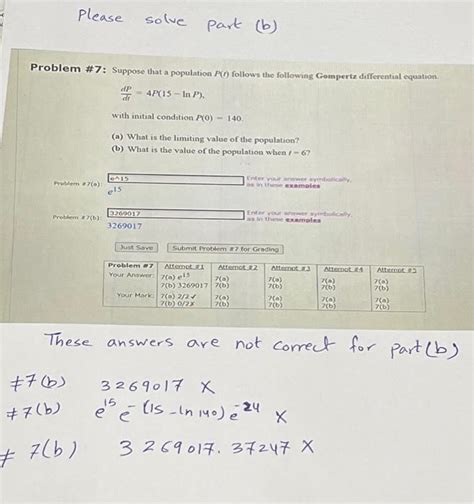 Please solve part (b)
Problem #7: Suppose that a population P(t) follows the following Gompertz differential equation.
dP/dt = 4P(15 − ln P),
with initial condition P(0) = 140.
(a) What is the limiting value of the population?
(b) What is the value of the population when t = 6?
Problem #7(a): e^15 Enter your answer symbolically, as in these examples
e^15
Problem #7(b): 3269017 Enter your answer symbolically, as in these examples
3269017
Just Save Submit Problem #7 for Grading
Problem #7 Attempt #1 Attempt #2 Attempt #3 Attempt #4 Attempt #5
Your Answer: 7(a) e^15 7(a) 7(a) 7(a) 7(a)
7(b) 3269017 7(b) 7(b) 7(b) 7(b)
Your Mark: 7(a) 2/2✓ 7(a) 7(a) 7(a) 7(a)
7(b) 0/2X 7(b) 7(b) 7(b) 7(b)
These answers are not correct for part (b)
#7(b) 3269017 X
#7(b) e^15 e^-(15-ln 140) e^-24 X
# 7(b) 3269017.37247 X